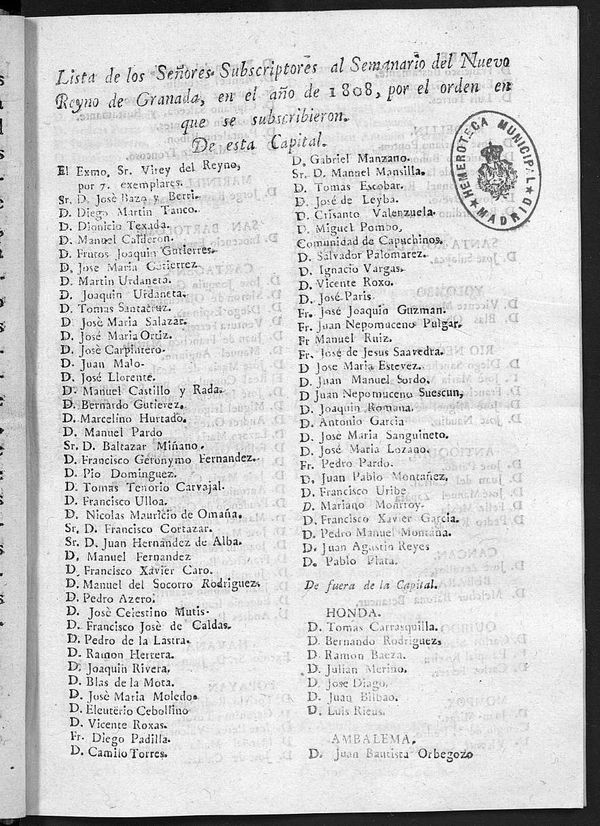 Lista de los Señores Subscriptores al Semanario del Nuevo
Reyno de Granada, en el año de 1808, por el orden en
que se subscribieron.
De esta Capital.
El Exmo, Sr. Virey del Reyno,
por 7. exemplares.
Sr. D. Josè Bazo y Berri.
D. Diego Martin Tanco.
D. Dionicio Texada.
D. Manuel Calderon.
D. Frutos Joaquin Gutierres.
D. Jose Maria Gutierrez
D. Martin Urdaneta.
D. Joaquin Urdaneta.
D. Tomas Santacruz.
D. Josè Maria Salazar.
D. José Maria Ortiz.
D. Josè Carpintero.
D. Juan Malo.
D. José Llorente.
D. Manuel Castillo y Rada.
D. Bernardo Gutierez.
D. Marcelino Hurtado.
D. Manuel Pardo
Sr. D. Baltazar Miñano.
D. Francisco Geronymo Fernandez.
D. Pio Dominguez.
D. Tomas Tenorio Carvajal.
D. Francisco Ulloa.
D. Nicolas Mauricio de Omaña.
Sr. D. Francisco Cortazar.
Sr. D. Juan Hernandez de Alba.
D. Manuel Fernandez
D. Francisco Xavier Caro.
D. Manuel del Socorro Rodriguez.
D. Pedro Azero.
D. Josè Celestino Mutis.
D. Francisco Josè de Caldas.
D. Pedro de la Lastra.
D. Ramon Herrera.
D. Joaquin Rivera.
D. Blas de la Mota.
D. Josè Maria Moledo.
D. Eleuterio Cebollino
D. Vicente Roxas.
Fr. Diego Padilla.
D. Camilo Torres.
D. Gabriel Manzano.
Sr. D. Manuel Mansilla.
D. Tomas Escobar.
D. José de Leyba.
D. Crisanto Valenzuela.
D. Miguel Pombo,
Comunidad de Capuchinos.
D. Salvador Palomarez.
D. Ignacio Vargas.
D. Vicente Roxo.
D. José Paris
Fr. José Joaquin Guzman.
Fr. Juan Nepomuceno Pulgar.
Fr Manuel Ruiz.
Fr. José de Jesus Saavedra.
D Jose Maria Estevez.
D Juan Manuel Sordo.
D Juan Nepomuceno Suescun,
D. Joaquin Romana.
D. Antonio Garcia
D. José Maria Sanguineto.
D. José Maria Lozano.
Fr. Pedro Pardo.
D. Juan Pablo Montañez,
D. Francisco Uribe
D. Mariano Monrroy.
D. Francisco Xavier Garcia.
D. Pedro Manuel Montaña.
D. Juan Agustin Reyes
D. Pablo Plata.
De fuera de la Capital.
HONDA.
D. Tomas Carrasquilla.
D. Bernando Rodriguez,
D. Ramon Baeza.
D. Julian Merino.
D. Jose Diago.
D. Juan Bilbao.
D. Luis Rieus.
AMBALEMA.
D. Juan Bautista Orbegozo
HEMEROTECA MUNICIPAL
MADRID